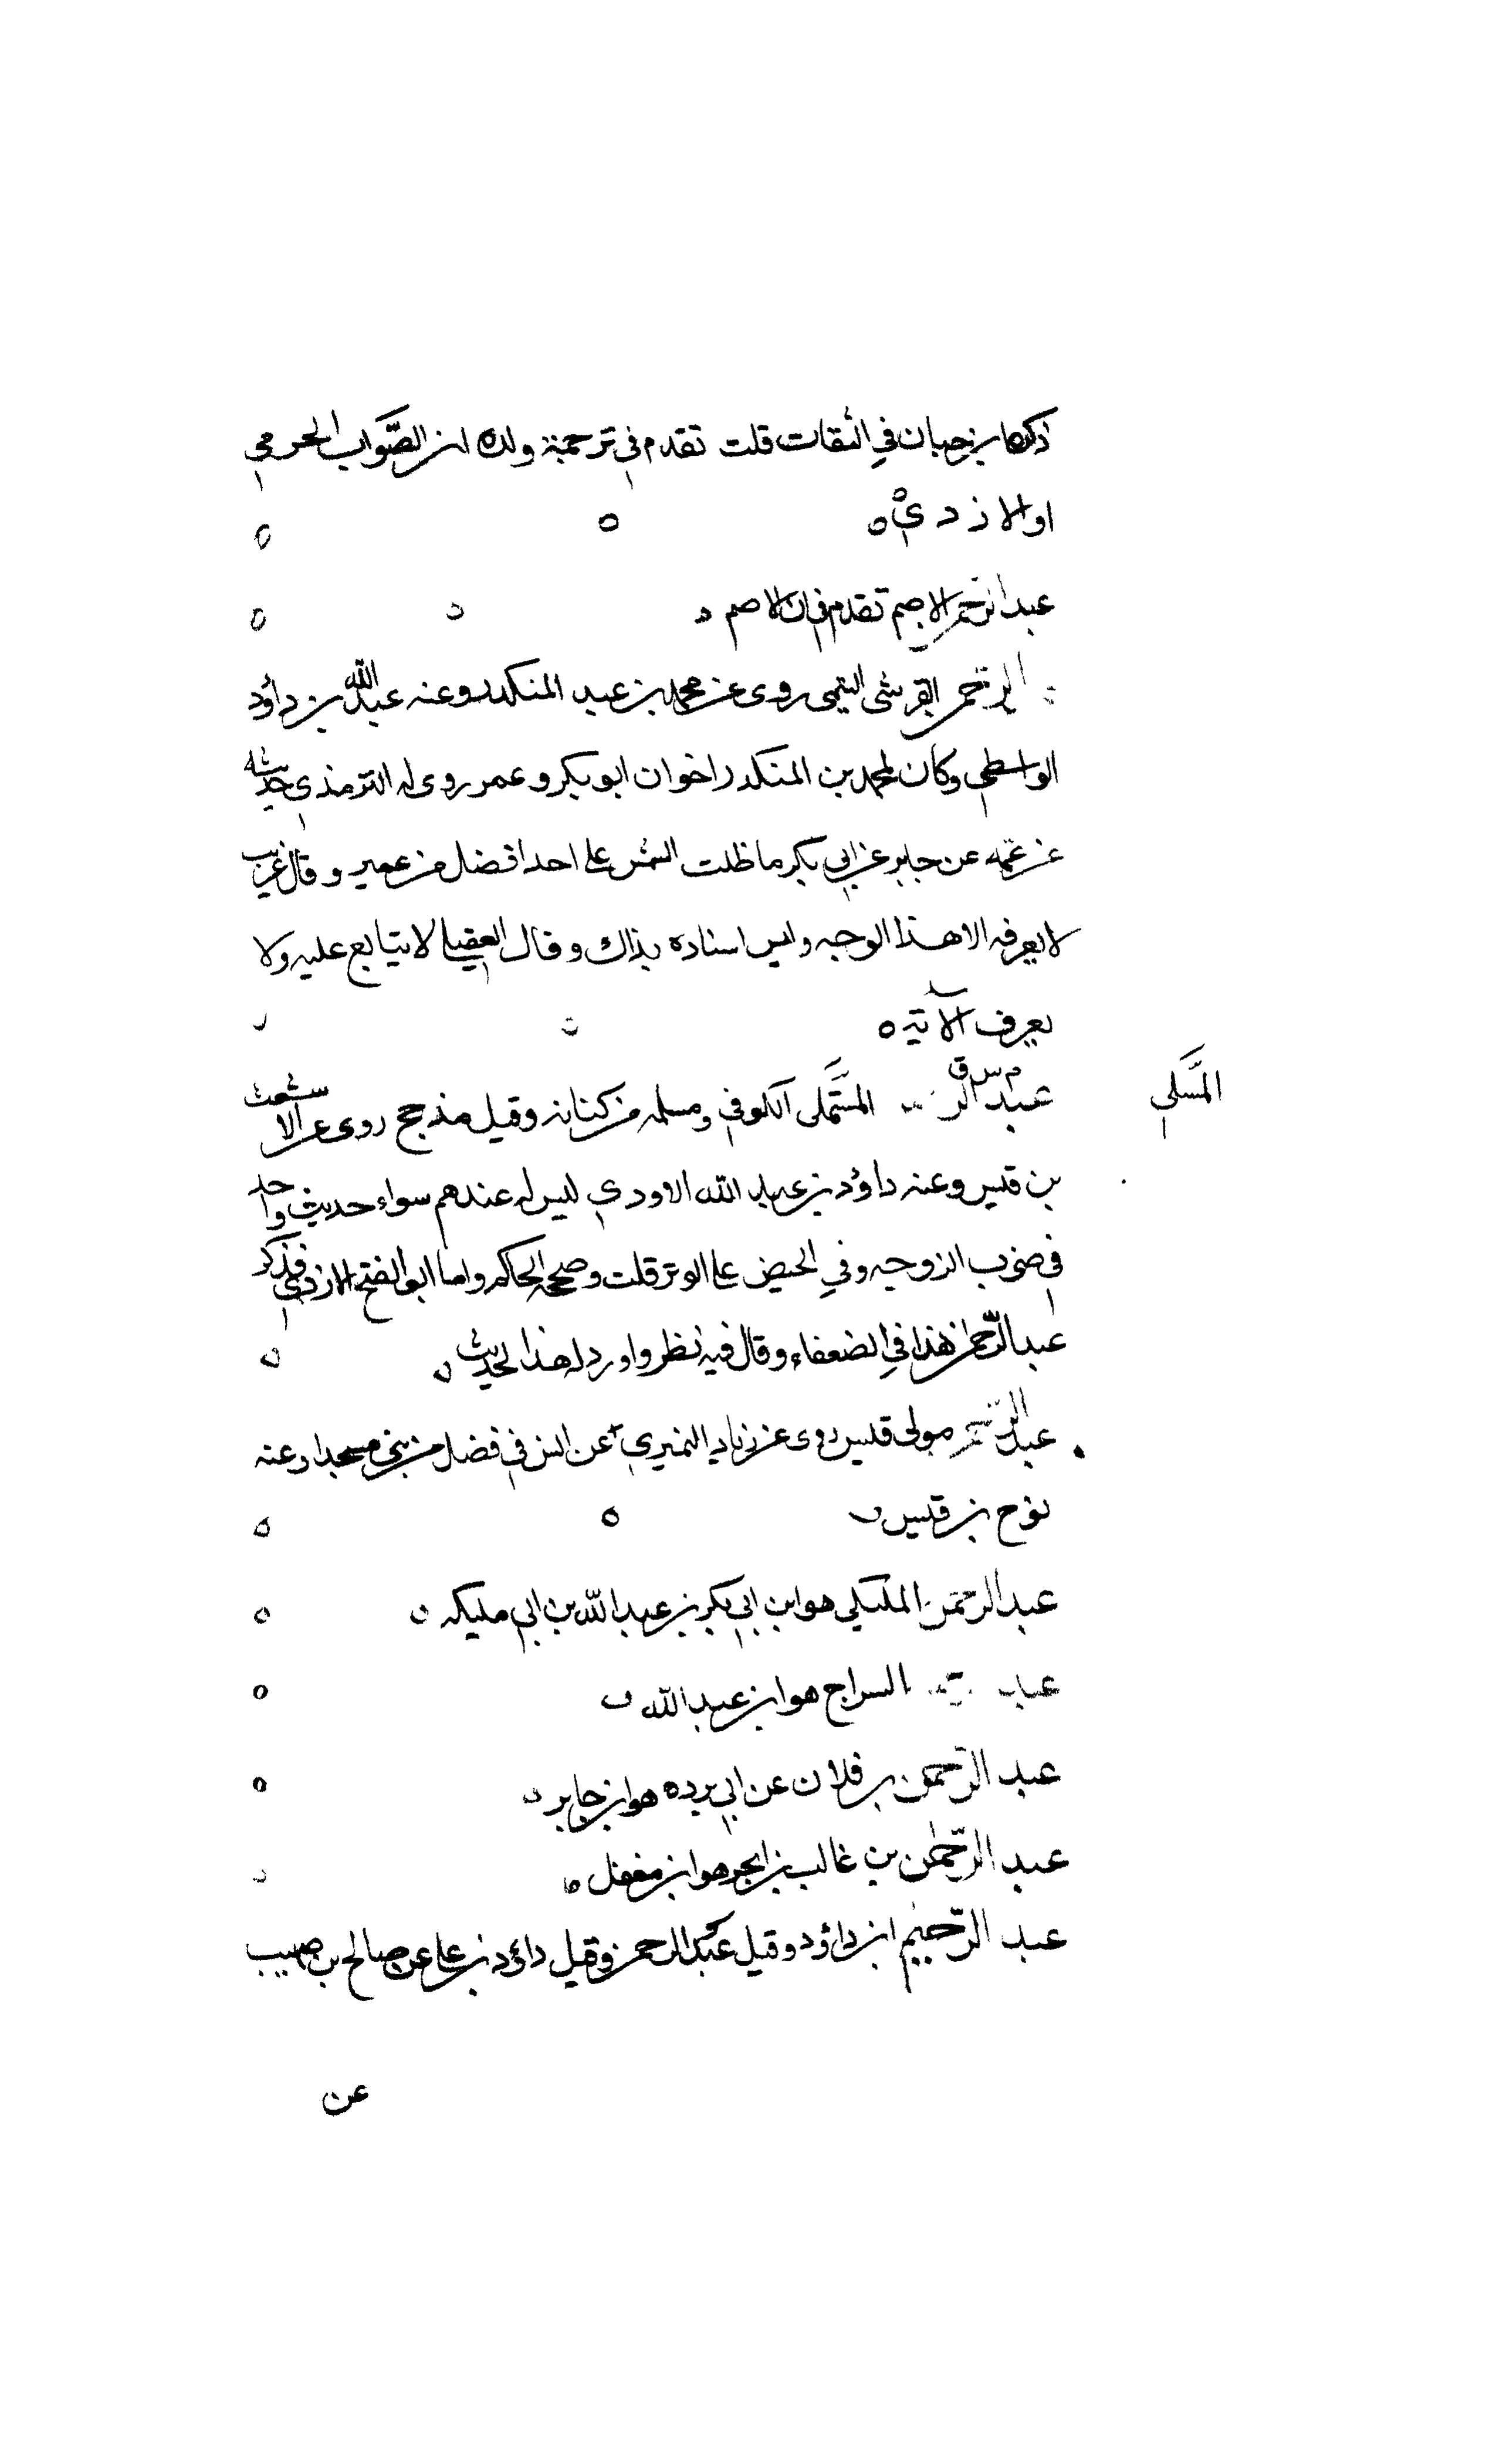 ذكره ابن حبان في الثقات قلت تقدم في ترجمة ولده ان الصَّوَاب الجرمي
او الازدي
عبد الرحمن الاصم تقدم في ابن الاصم
الرحمن القرشي التيمي روى عن محمد بن عبد المنكدر وعنه عبد الله بن داؤد
الواسطي وكان لمحمد بن المنكدر اخوان ابو بكر وعمر روى له الترمذي حديثه
عن عمّه عن جابر عن ابي بكر ما طلت الشمس على احد افضل من عمر وقال غريب
لا يعرفه الا هذا الوجه وليس اسناده بذاك وقال العقيلي لا يتابع عليه ولا
يعرف الا به
م س ق
عبد الر المسَّلى الكوفي ومسلمه من كنانه وقيل مذحج روى عن الاشعث
المسَّلي
بن قيس وعنه داؤد بن عبد الله الاودي ليس له عندهم سواء حديث واحد
في ضرب الزوجه وفي الحيض على الوتر قلت وصححه الحاكم واما ابو الفتح الازدي فذكر
عبد الرّحمن هذا في الضعفاء وقال فيه نظر واورد له هذا الحديث
عبد الرحمن مولى قيس روى عن زياد النميري عن انس في فضل من بنى مسجدا وعنه
نوح بن قيس
عبد الرحمن المليكي هو ابن ابي بكر بن عبد الله بن ابي مليكه
عبد السراج هو ابن عبد الله
عبد الرّحمن بن فلان عن ابي برده هو ابن جابر
عبد الرّحمٰن بن غالب بن ابجر هو ابن مغفل
عبد الرّحيم ابن داؤد وقيل عبد الرحمن وقيل داؤد بن علي عن صالح بن صهيب
عن